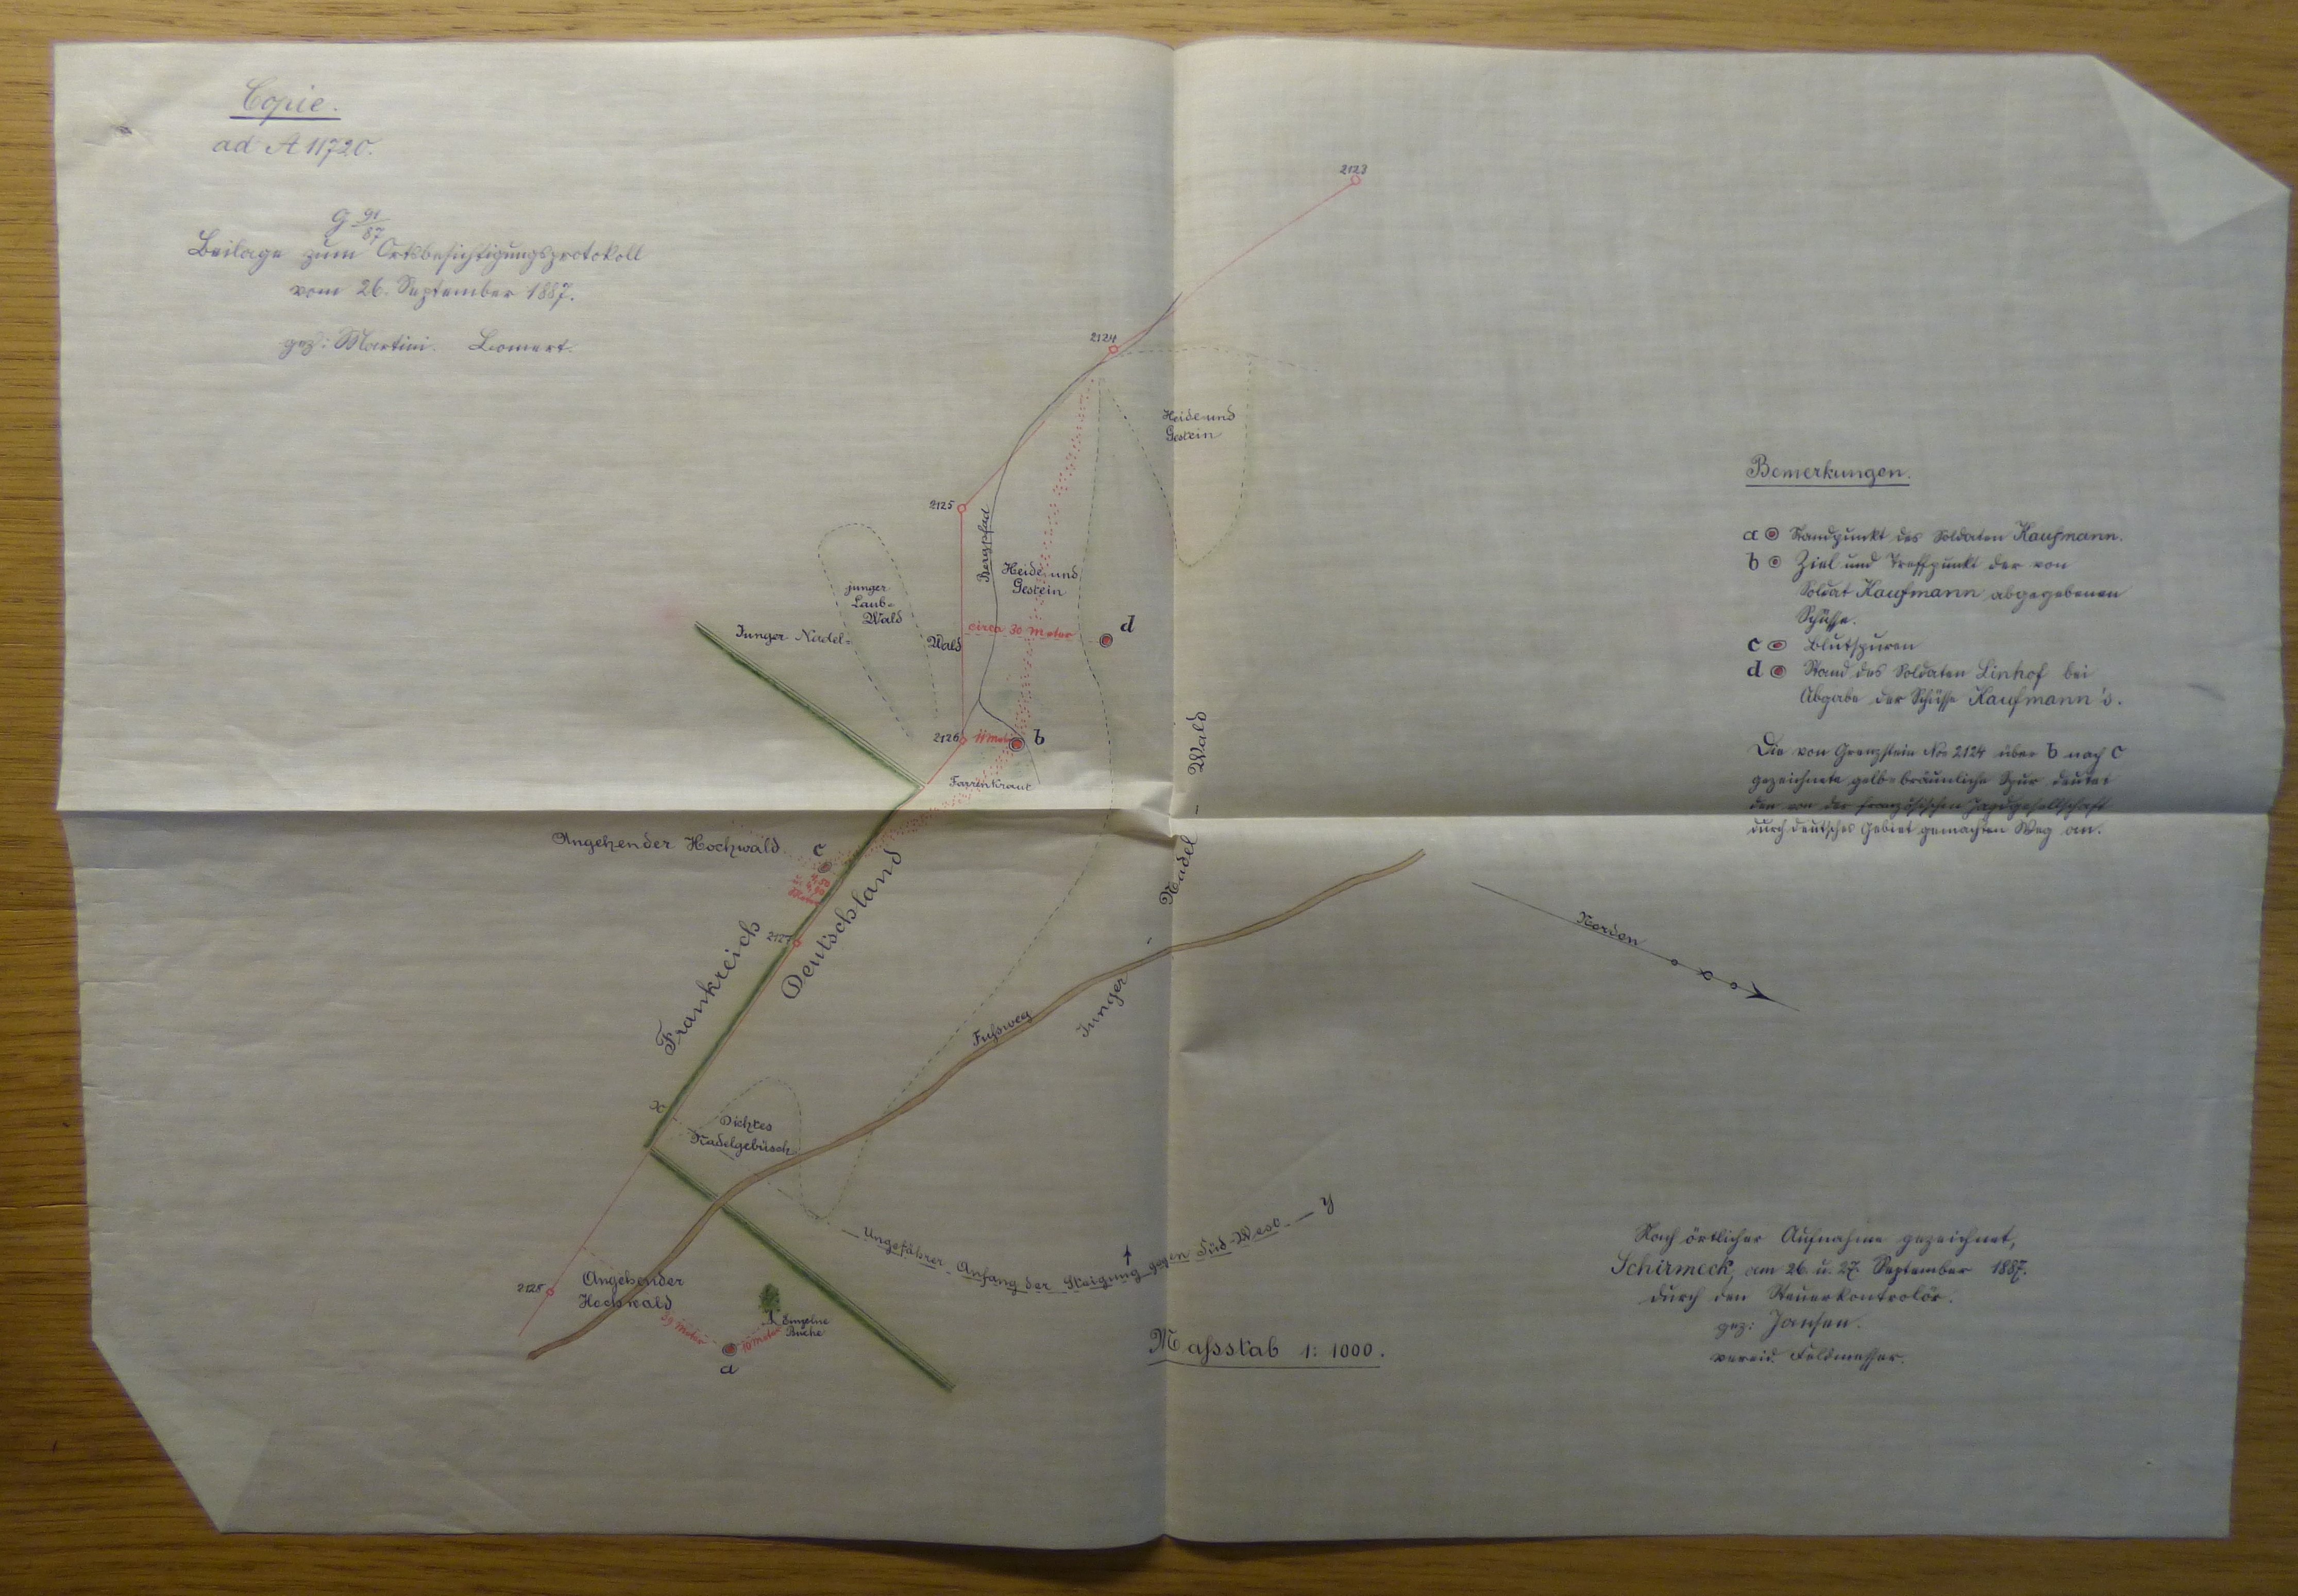 Copie.
ad A 11720.
G 91/87
Beilage zum Ortsbesichtigungsprotokoll
vom 26. September 1887.
gez: Martini. Lomert.
2123
2124
Heide und
Gestein
2125
Bergpfad
Heide und
Gestein
junger
Laub-
Wald
Junger Nadel-
Wald
circa 30 Meter
d
2126
11 Met.
b
Farrenkraut
Angehender Hochwald
c
Meter
Frankreich
2127
Deutschland
Junger - Nadel - Wald
Fußweg
x
Dichtes
Nadelgebüsch
Ungefährer Anfang der Steigung gegen Süd-West y
2128
Angehender
Hochwald
39 Meter
10 Meter
Einzelne
Buche
a
Maßstab 1:1000.
Bemerkungen.
a Standpunkt des Soldaten Kaufmann.
b Ziel und Treffpunkt der von
Soldat Kaufmann abgegebenen
Schüsse.
c Blutspuren
d Stand des Soldaten Linhof bei
Abgabe der Schüsse Kaufmann's.
Die von Grenzstein Nro 2124 über b nach c
gezeichnete gelb-bräunliche Spur deutet
den von der französischen Jagdgesellschaft
durch deutsches Gebiet gemachten Weg an.
Norden
Nach örtlicher Aufnahme gezeichnet,
Schirmeck, am 26. u. 27. September 1887.
durch den Steuerkontrolör.
gez: Jansen.
vereid. Feldmesser.